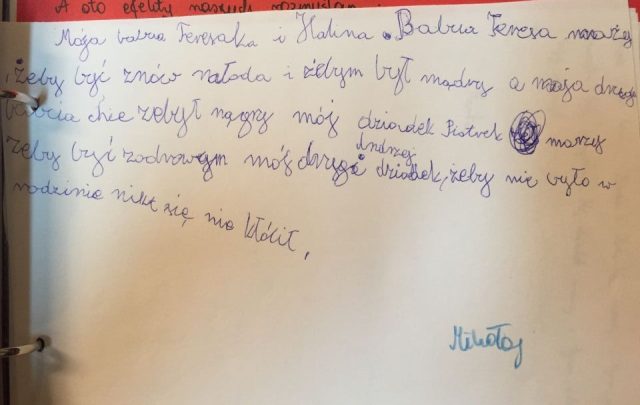 A oto efekty naszych rozmyślań
Moja babcia Teresaka i Halina. Babcia Teresa marzy
, żeby być znów młoda i żebym był mądry a moja druga
babcia chce żebył mądry mój dziadek Piotrek marzy
żeby być zdrowym mój drugi dziadek, żeby nie było w
Andrzej
rodzinie nikt się nie kłócił,
Mikołaj